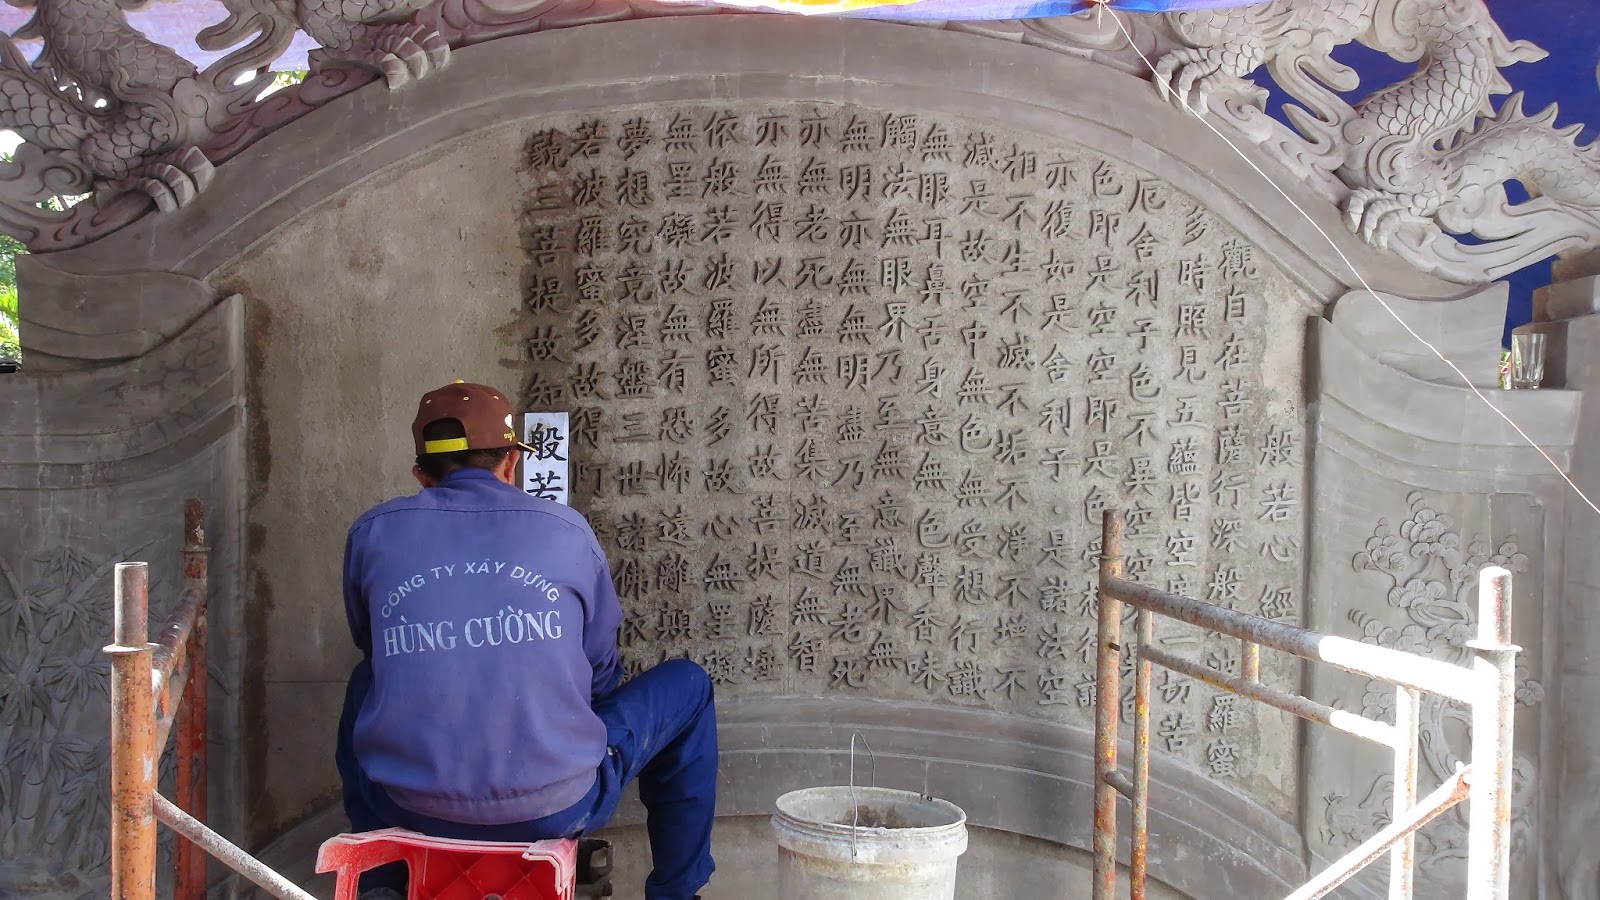 般若心經
觀自在菩薩行深般波羅蜜
多時照見五蘊皆空一切苦
厄舍利子色不異空空異色
色即是空空即是色受想行識
亦復如是舍利子·是諸法空
相不生不滅不垢不淨不增不
減是故空中無色無受想行識
無眼耳鼻舌身意無色聲香味
觸法無眼界乃至無意識界無
無明亦無無明盡乃至無老死
亦無老死盡無苦集滅道無智
亦無得以無所得故菩提薩埵
依般若波羅蜜多故心無罣礙
無罣礙故無有恐怖遠離顛
夢想究竟涅盤三世諸佛依
若波羅蜜多故得阿
藐三菩提故知
般若
CÔNG TY XÂY DỰNG
HÙNG CƯỜNG